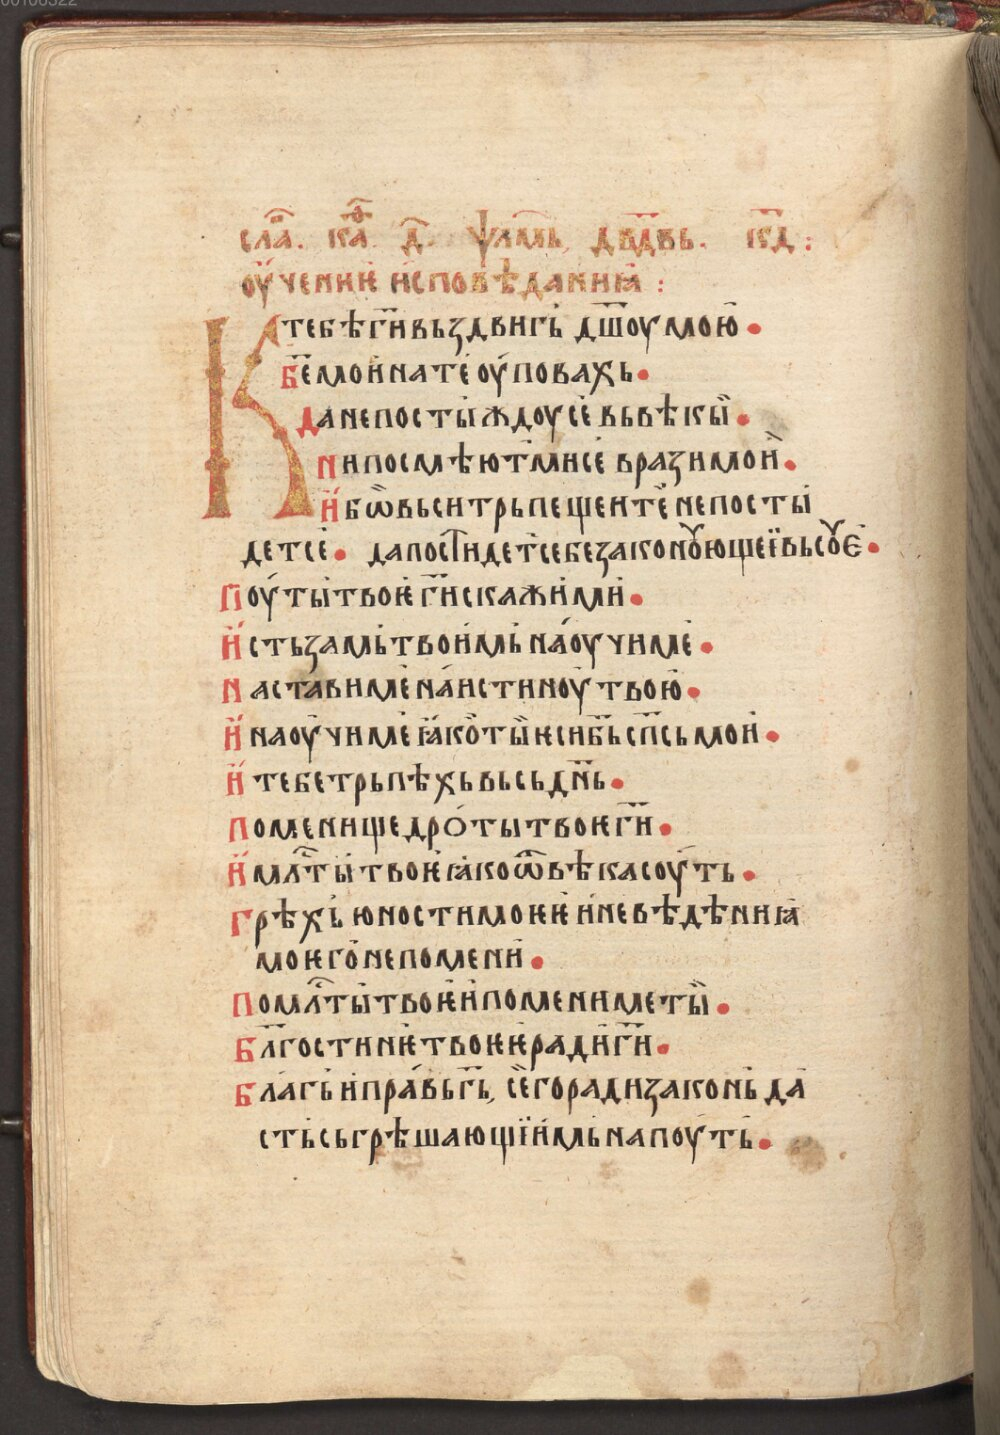 00106322
сла҃. ка҃ѳ. д҃. ѱал҃мь, дв҃двь. к҃д :
оу҆чениѥ и҆сповѣданиꙗ :
Къ тебѣ гн҃и вьздвигь дш҃оу мою ·
бж҃е мои на те оу҆повахь ·
да не постыждоу се вь вѣкы ·
ни посмѣют ми се врази мои ·
и҆бо вьси трьпещеи те не посты
дет се · да постидет се безаконоующеї вьсоує ·
Поути твоѥ гн҃и скажи ми ·
и҆ стьзамь твоимь наоучи ме ·
Настави ме на истиноу твою ·
и҆ наоучи ме ꙗко ты ѥси бь҃ сп҃сь мои ·
и҆ тебе трьпѣхь вьсь дн҃ь ·
помени щедроты твоѥ гн҃и ·
и҆ млс҃ты твоѥ ꙗко ѿ вѣка соуть ·
грѣхь юности моѥѥ и невѣдѣниꙗ
моѥго не помени ·
по млс҃ты твоѥи помени ме ты ·
бл҃гостиниѥ твоѥѥ ради гн҃и ·
благь и правь гь҃, сего ради законь да
сть сьгрѣшающиимь на поуть ·